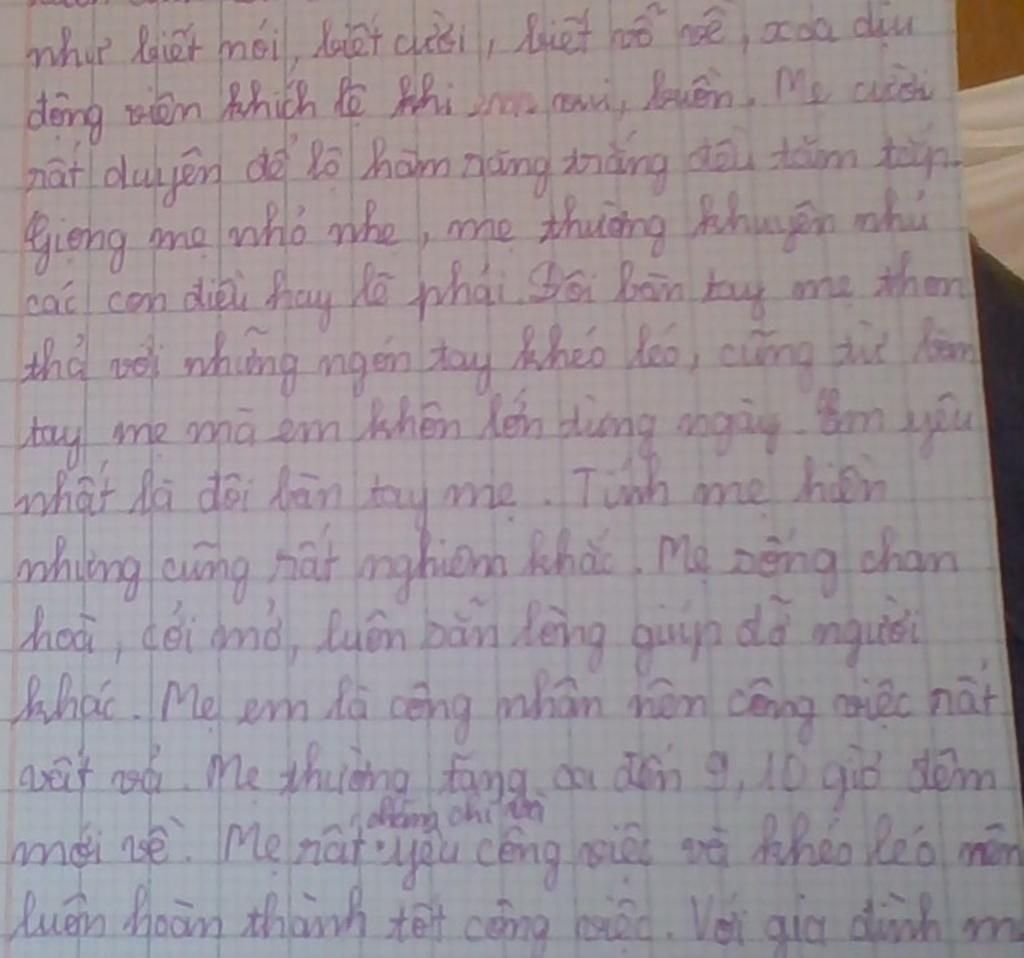 như biết nói, biết cười, biết vỗ về, xoa dịu
động viên khích lệ khi em vui, buồn. Mẹ cười
rất duyên để lộ hàm răng trắng đều tăm tắp.
Giọng mẹ nhỏ nhẹ, mẹ thường khuyên nhủ
các con điều hay lẽ phải. Đôi bàn tay mẹ thon
thả với những ngón tay khéo léo, cũng từ bàn
tay mẹ mà em khôn lớn từng ngày. Em yêu
nhất là đôi bàn tay mẹ. Tính mẹ hiền
nhưng cũng rất nghiêm khắc. Mẹ sống chan
hoà, cởi mở, luôn sẵn lòng giúp đỡ người
khác. Mẹ em là công nhân nên công việc rất
vất vả. Mẹ thường tăng ca đến 9, 10 giờ đêm
mới về. Mẹ rất yêu công việc và khéo léo nên
luôn hoàn thành tốt công việc. Với gia đình